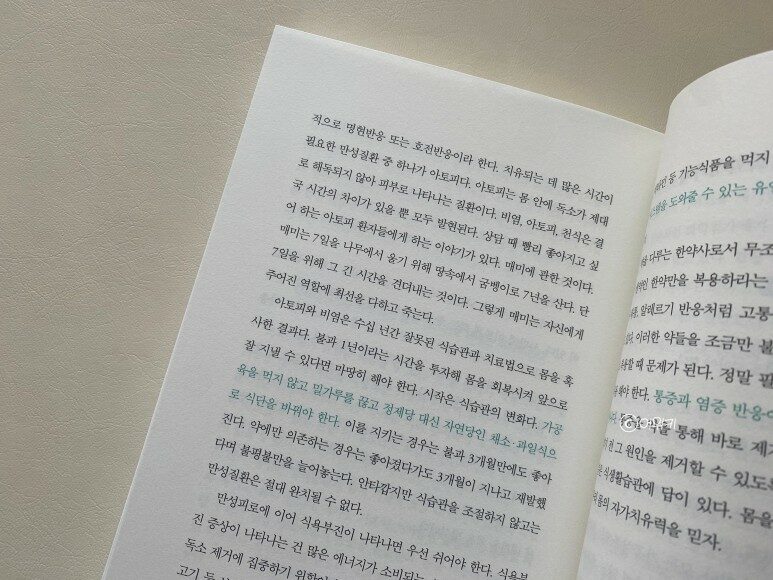 적으로 명현반응 또는 호전반응이라 한다. 치유되는 데 많은 시간이
필요한 만성질환 중 하나가 아토피다. 아토피는 몸 안에 독소가 제대
로 해독되지 않아 피부로 나타나는 질환이다. 비염, 아토피, 천식은 결
국 시간의 차이가 있을 뿐 모두 발현된다. 상담 때 빨리 좋아지고 싶
어 하는 아토피 환자들에게 하는 이야기가 있다. 매미에 관한 것이다.
매미는 7일을 나무에서 울기 위해 땅속에서 굼벵이로 7년을 산다. 단
7일을 위해 그 긴 시간을 견뎌내는 것이다. 그렇게 매미는 자신에게
주어진 역할에 최선을 다하고 죽는다.
아토피와 비염은 수십 년간 잘못된 식습관과 치료법으로 몸을 혹
사한 결과다. 불과 1년이라는 시간을 투자해 몸을 회복시켜 앞으로
잘 지낼 수 있다면 마땅히 해야 한다. 시작은 식습관의 변화다. 가공
육을 먹지 않고 밀가루를 끊고 정제당 대신 자연당인 채소·과일식으
로 식단을 바꿔야 한다. 이를 지키는 경우는 불과 3개월만에도 좋아
진다. 약에만 의존하는 경우는 좋아졌다가도 3개월이 지나고 재발했
다며 불평불만을 늘어놓는다. 안타깝지만 식습관을 조절하지 않고는
만성질환은 절대 완치될 수 없다.
만성피로에 이어 식욕부진이 나타나면 우선 쉬어야 한다. 식욕부
진 증상이 나타나는 건 많은 에너지가 소비되는
독소 제거에 집중하기 위함이
고기 등
등 기능식품을 먹지
도와줄 수 있는 유
다루는 한약사로서 무조
한약만을 복용하라는
알레르기 반응처럼 고통
이러한 약들을 조금만 불
때 문제가 된다. 정말 필
해야 한다. 통증과 염증 반응이
통해 바로 제거
그 원인을 제거할 수 있도록
식생활습관에 답이 있다. 몸을
자가치유력을 믿자.